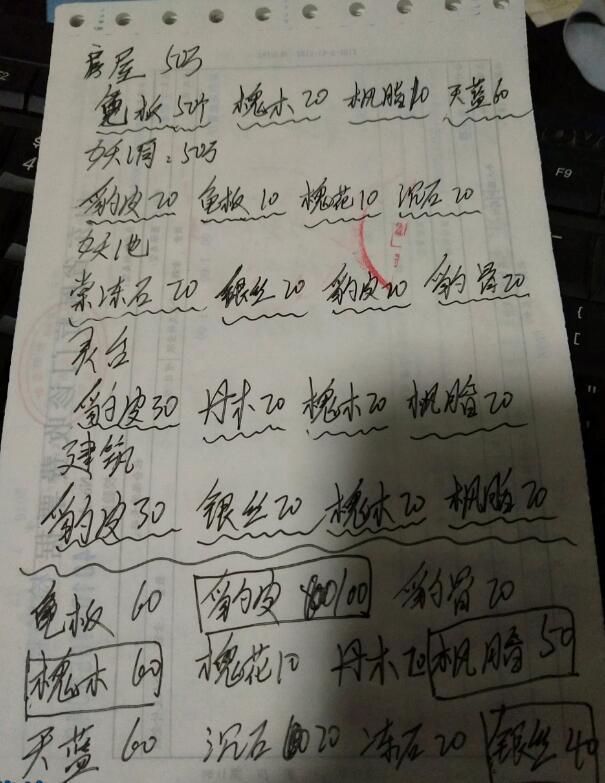 房屋 50万
龟板50个 槐木20 枫脂10 天蓝60
妖洞:50万
豹皮20 龟板10 槐花10 沉石20
妖池
常冻石20 银丝20 豹皮20 豹骨20
灵台
豹皮30 丹木20 槐木20 枫脂20
建筑
豹皮30 银丝20 槐木20 枫脂20
龟板 60 豹皮 100 豹骨20
槐木 60 槐花10 丹木20 枫脂 50
天蓝 60 沉石 20 冻石20 银丝40